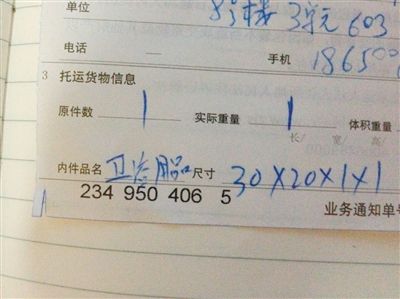 单位 号楼 3单元 603
电话 — 手机 18650
3 托运货物信息
原件数 1 实际重量 1 体积重量
长/ 宽/ 高/
内件品名 卫浴用品 尺寸 30X20X1X1
234 950 406 5 业务通知单号